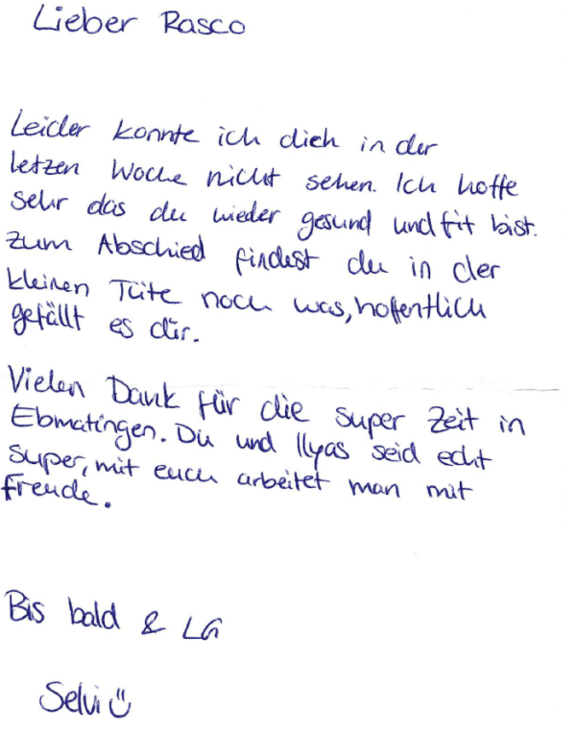 Lieber Rasco
Leider konnte ich dich in der
letzen Woche nicht sehen. Ich hoffe
sehr das du wieder gesund und fit bist.
Zum Abschied findest du in der
kleinen Tüte noch was, hoffentlich
gefällt es dir.
Vielen Dank für die super Zeit in
Ebmatingen. Du und Ilyas seid echt
super, mit euch arbeitet man mit
Freude.
Bis bald & LG
Selvi ☺